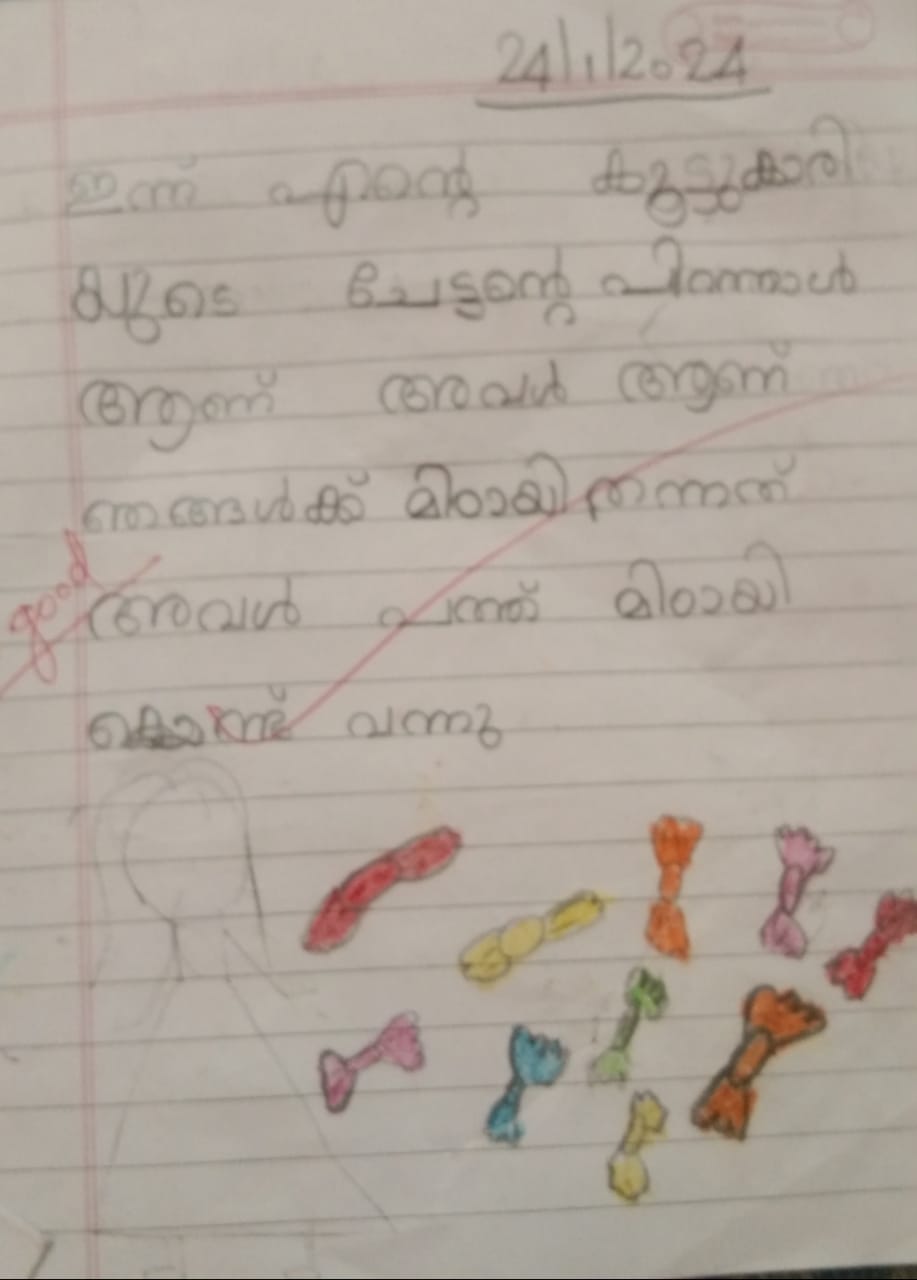 24/1/2024
ഇന്ന് എന്റെ കൂട്ടുകാരി
യുടെ ചേട്ടന്റെ പിറന്നാൾ
ആണ് അവൾ ആണ്
ഞങ്ങൾക്ക് മിഠായി തന്നത്
good
അവൾ പത്ത് മിഠായി
വന്നു